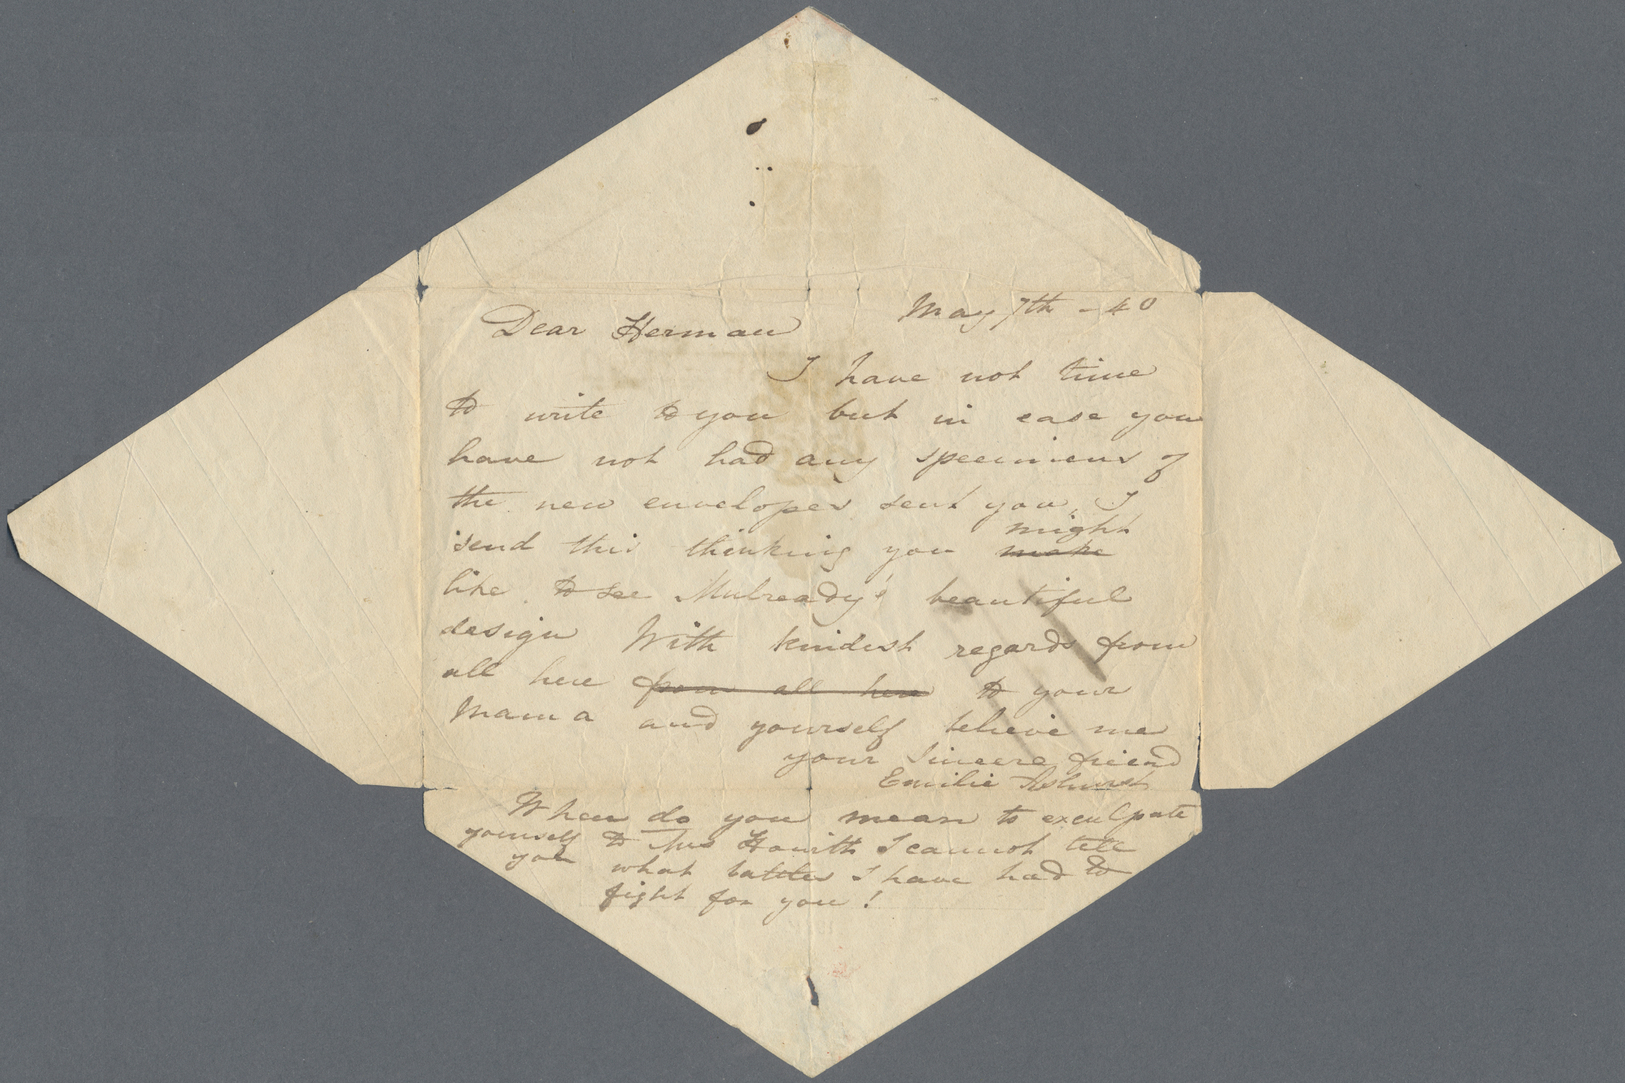 May 7th - 40
Dear Herman
I have not time
to write to you but in case you
have not had any specimens of
the new envelopes sent you, I
send this thinking you might
make
like to see Mulready's beautiful
design With kindest regards from
all here from all here to your
Mama and yourself believe me
your sincere friend
Emilie Ashurst
When do you mean to exculpate
yourself to Howitt I cannot tell
you what battles I have had to
fight for you!